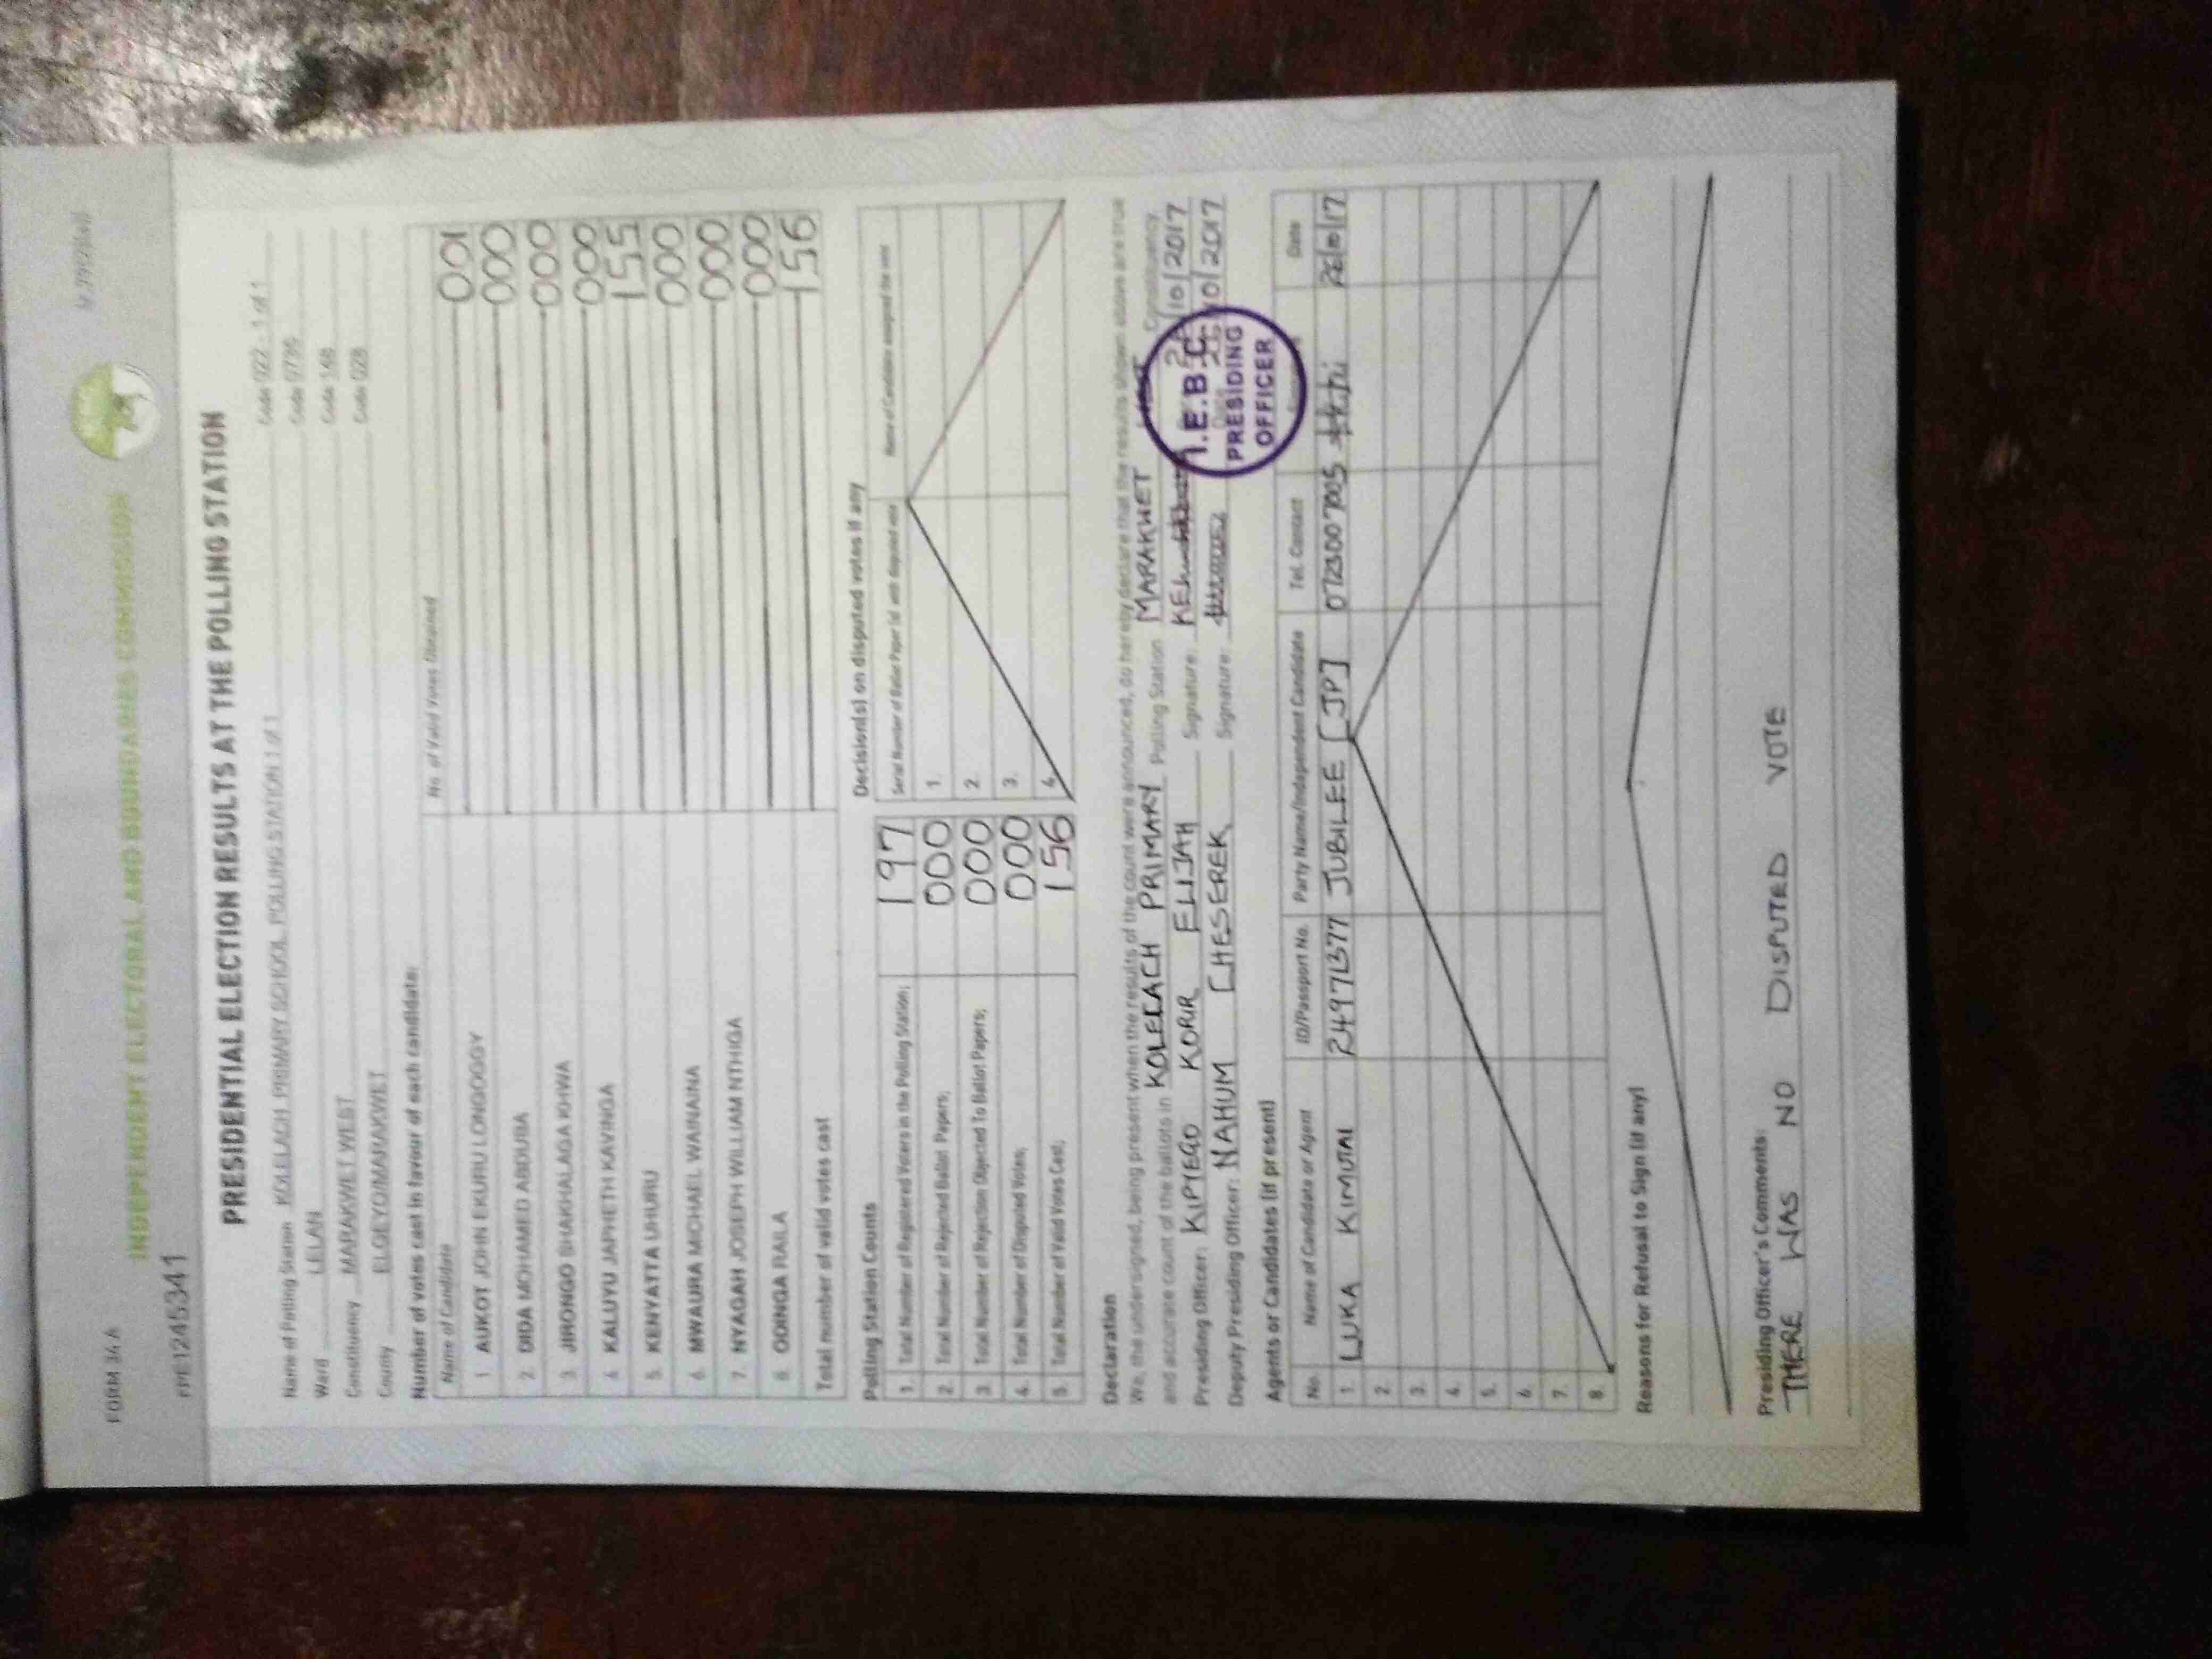 FORM 34A
INDEPENDENT ELECTORAL AND BOUNDARIES COMMISSION
#PE1245341
PRESIDENTIAL ELECTION RESULTS AT THE POLLING STATION
Name of Polling Station KOLELACH PRIMARY SCHOOL POLLING STATION 1 of 1 Code 022 - 1 of 1
Ward LELAN Code 0736
Constituency MARAKWET WEST Code 148
County ELGEYO/MARAKWET Code 028
Number of votes cast in favour of each candidate:
Name of Candidate No. of Valid Votes Obtained
1 AUKOT JOHN EKURU LONGOGGY 001
2. DIDA MOHAMED ABDUBA 000
3 JIRONGO SHAKHALAGA KHWA 000
4 KALUYU JAPHETH KAVINGA 000
5. KENYATTA UHURU 155
6. MWAURA MICHAEL WAINAINA 000
7. NYAGAH JOSEPH WILLIAM NTHIGA 000
8. ODINGA RAILA 000
Total number of valid votes cast 156
Polling Station Counts
1. Total Number of Registered Voters in the Polling Station; 197
2. Total Number of Rejected Ballot Papers; 000
3. Total Number of Rejection Objected To Ballot Papers; 000
4. Total Number of Disputed Votes; 000
5. Total Number of Valid Votes Cast; 156
Decision(s) on disputed votes if any
Serial Number of Ballot Paper (s) with disputed vote Name of Candidate assigned the vote
1.
2.
3.
4.
Declaration
We, the undersigned, being present when the results of the count were announced, do hereby declare that the results shown above are true
and accurate count of the ballots in KOLELACH PRIMARY Polling Station MARAKWET WEST Constituency.
Presiding Officer: KIPYEGO KORIR ELIJAH Signature: /10/2017
Deputy Presiding Officer: NAHUM CHESEREK Signature: /10/2017
I.E.B.C.
PRESIDING
OFFICER
Agents or Candidates (if present)
No. Name of Candidate or Agent ID/Passport No. Party Name/Independent Candidate Tel. Contact Date
1. LUKA KIMUTAI 24971377 JUBILEE [JP] 26/10/17
2.
3.
4.
5.
6.
7.
8.
Reasons for Refusal to Sign (if any)
Presiding Officer's Comments:
THERE WAS NO DISPUTED VOTE